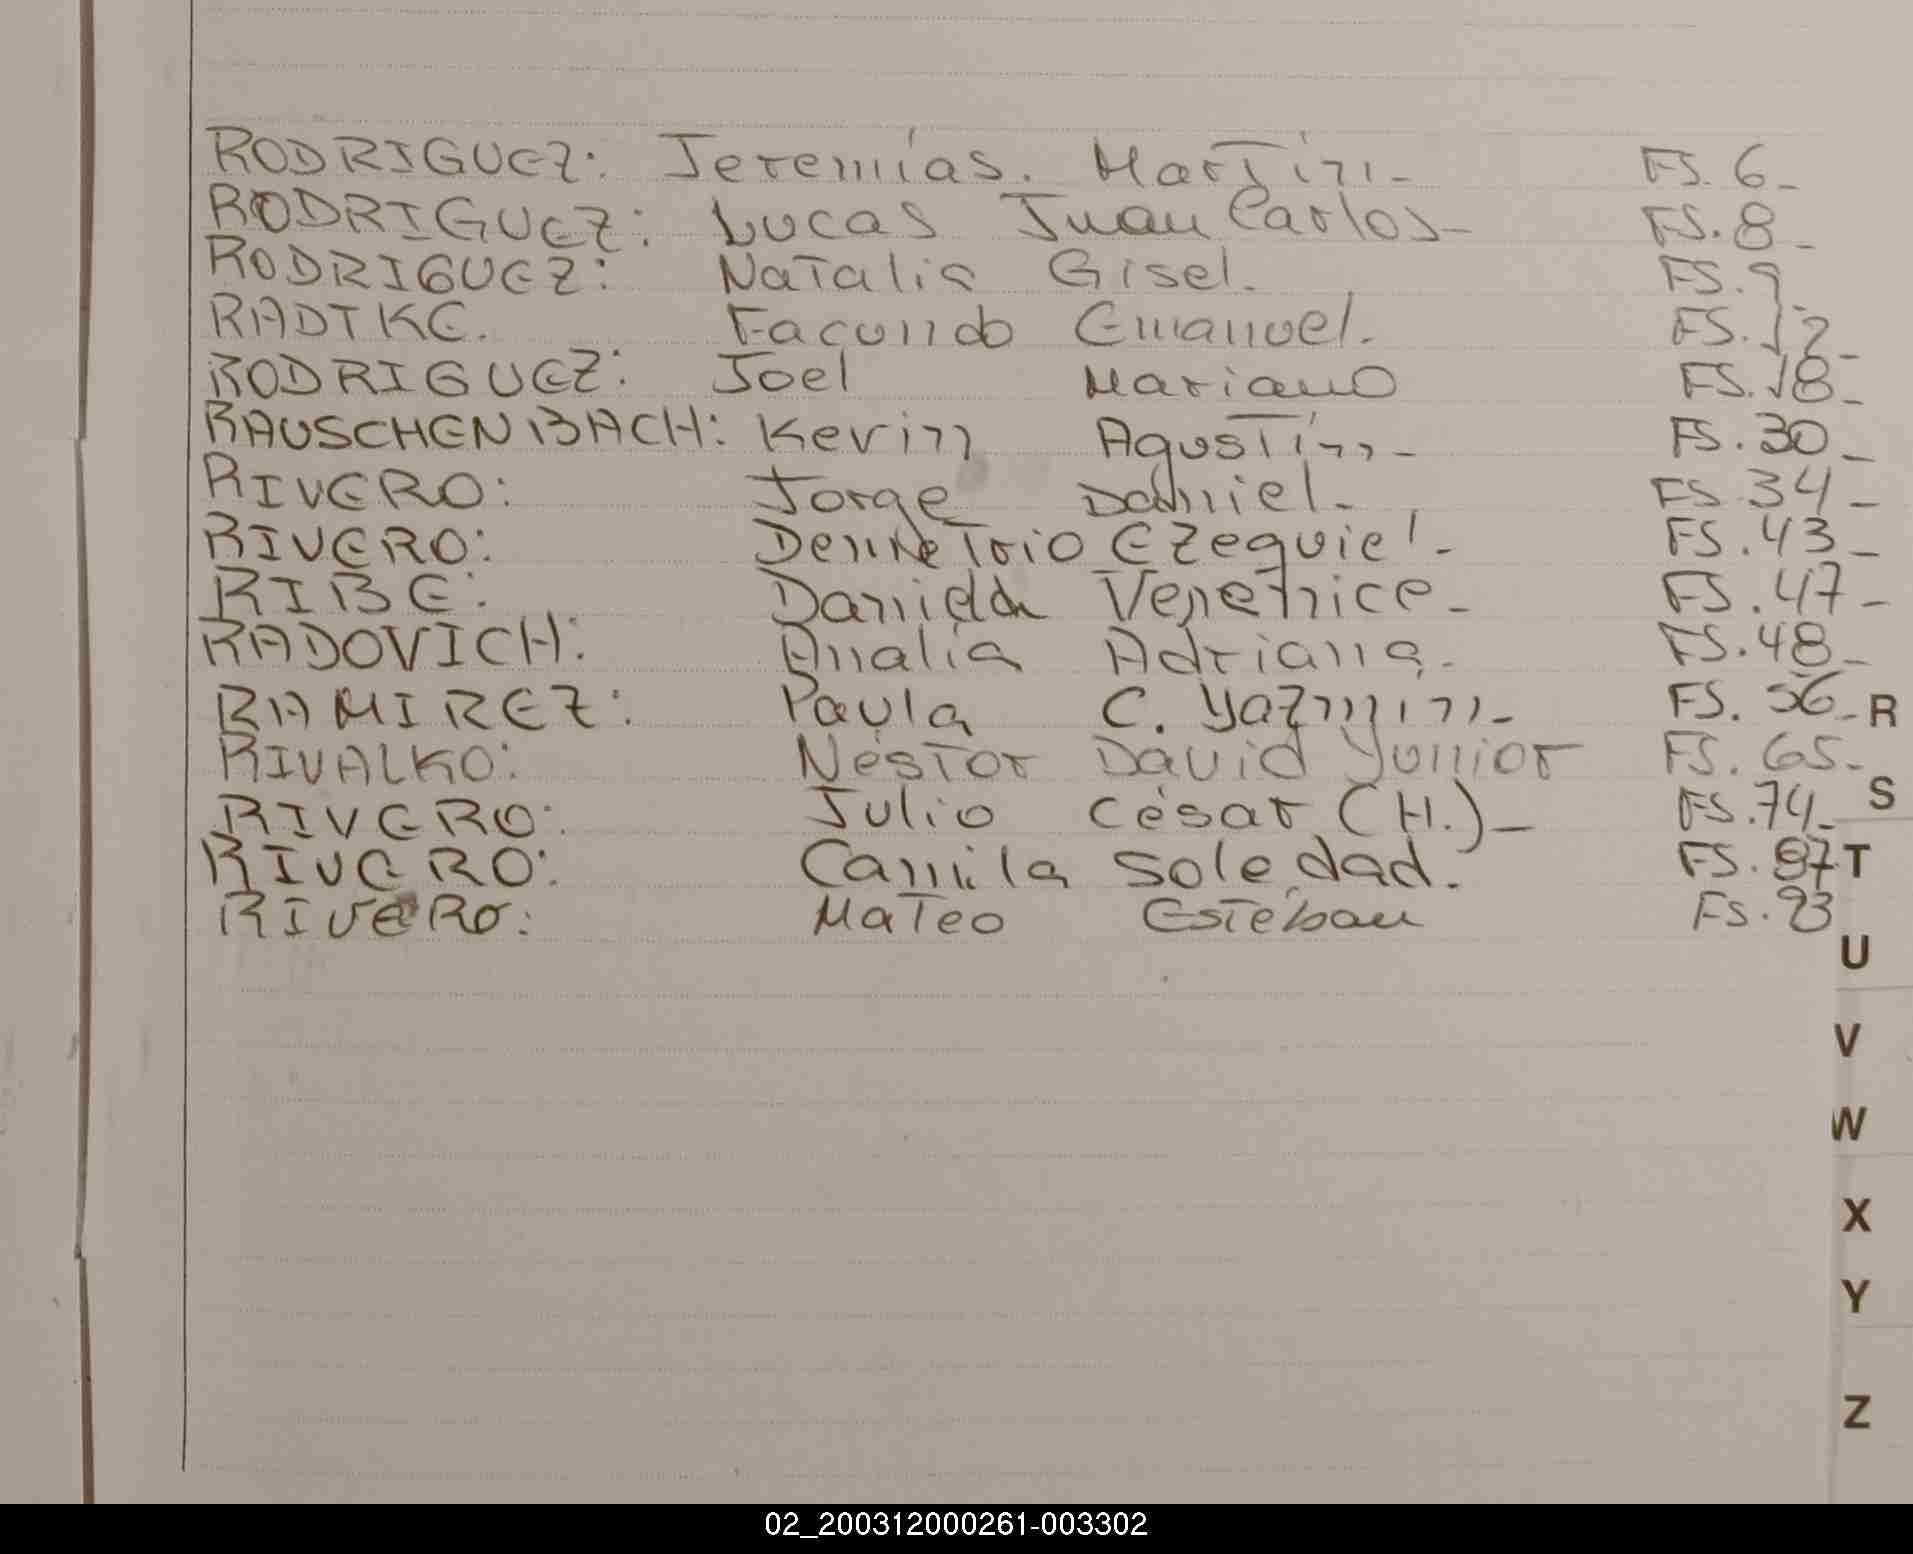 RODRIGUEZ: Jeremías. Martin- FS. 6-
RODRIGUEZ: Lucas Juan Carlos- FS. 8-
RODRIGUEZ: Natalia Gisel. FS. 9-
RADTKE. Facundo Emanuel. FS. 12-
RODRIGUEZ: Joel Mariano FS. 18-
RAUSCHENBACH: Kevin Agustín- FS. 30-
RIVERO: Jorge Daniel- FS 34-
RIVERO: Demetrio Ezequiel- FS. 43-
RIBE: Daniela FS. 47-
RADOVICH: Analía Adriana. FS. 48-
RAMIREZ: Paula C. Yazmin- FS. 56-
RIVALKO: Néstor David Yunior FS. 65-
RIVERO: Julio César (H.)- FS. 74-
RIVERO: Camila Soledad. FS. 87
RIVERO: Mateo Esteban FS. 93
R
S
T
U
V
W
X
Y
Z
02_200312000261-003302